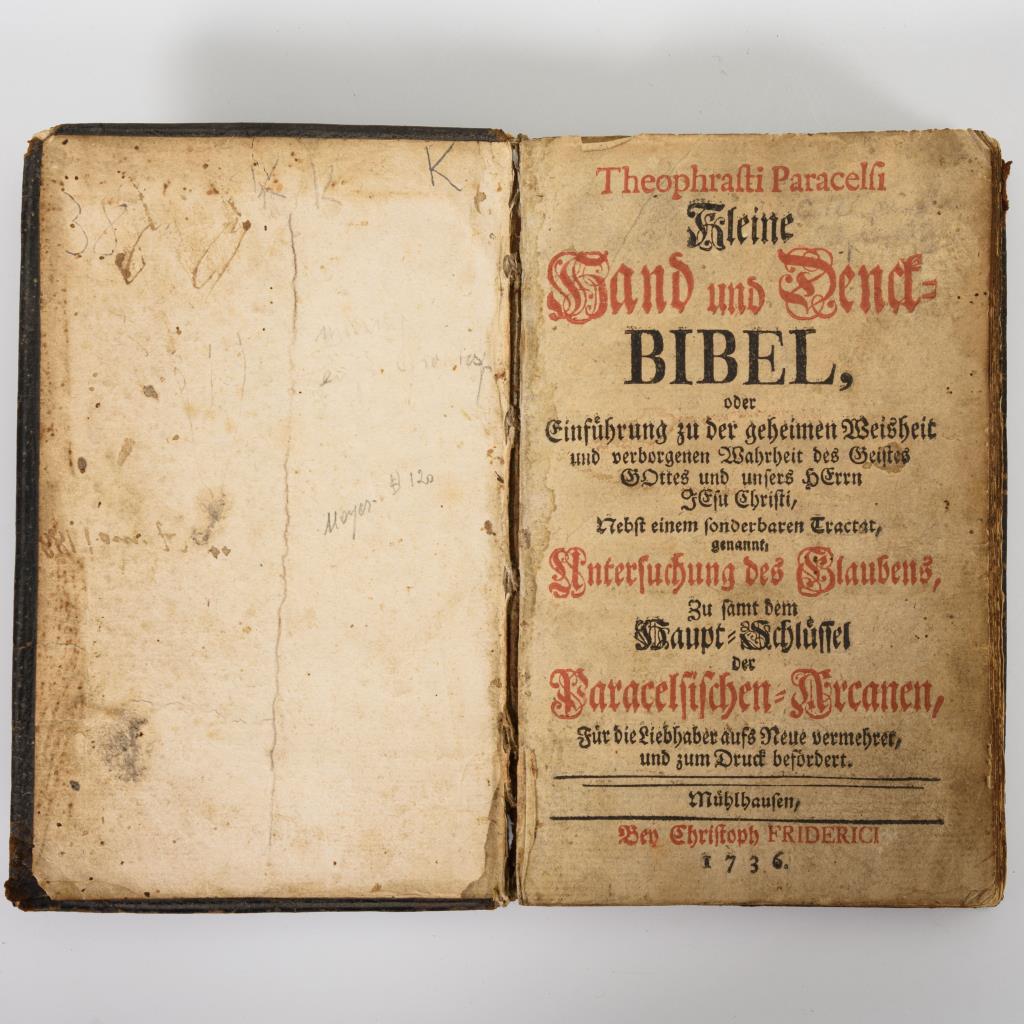 K K K
38
Meyer $ 120
Theophrasti Paracelsi
Kleine
Hand und Denck-
BIBEL,
oder
Einführung zu der geheimen Weisheit
und verborgenen Wahrheit des Geistes
GOttes und unsers HErrn
JEsu Christi,
Nebst einem sonderbaren Tractat,
genannt,
Untersuchung des Glaubens,
Zu samt dem
Haupt-Schlüssel
der
Paracelsischen-Arcanen,
Für die Liebhaber aufs Neue vermehret,
und zum Druck befördert.
Mühlhausen,
Bey Christoph FRIDERICI
1736.